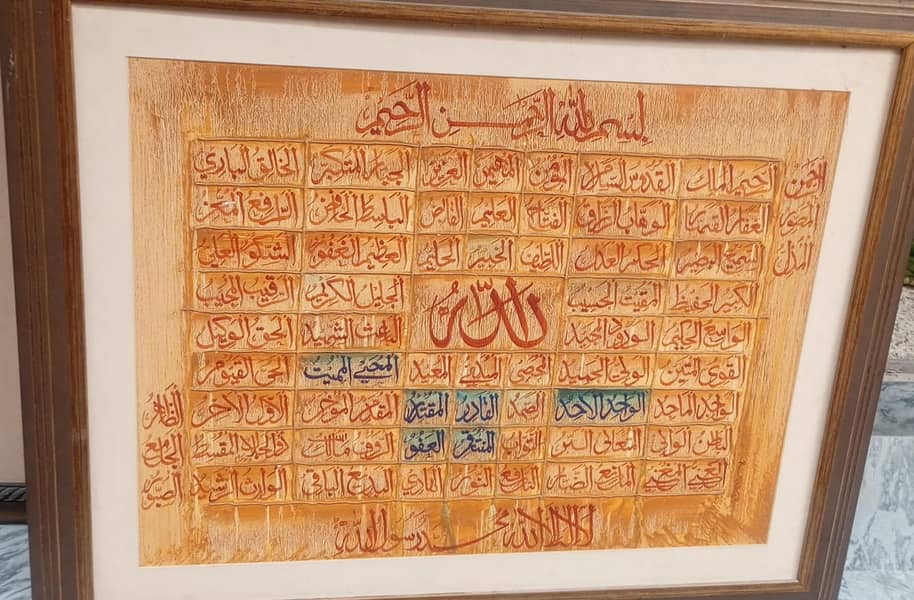 بسم الله الرحمن الرحيم
الرحمن الرحيم الملك القدوس السلام المؤمن المهيمن العزيز الجبار المتكبر الخالق الباري
المصور الغفار القهار الوهاب الرزاق الفتاح العليم القابض الباسط الخافض الرافع المعز
المذل السميع البصير الحكم العدل اللطيف الخبير الحليم العظيم الغفور الشكور العلي
الكبير الحفيظ المقيت الحسيب الجليل الكريم الرقيب المجيب
الله
الواسع الحكيم الودود المجيد الباعث الشهيد الحق الوكيل
القوي المتين الولي الحميد المحصي المبدئ المعيد المحيي المميت الحي القيوم
الواجد الماجد الواحد الاحد الصمد القادر المقتدر المقدم المؤخر الاول الاخر الظاهر
الباطن الوالي المتعالي البر التواب المنتقم العفو الرؤف مالك الملك ذوالجلال المقسط الجامع
الغني المغني المانع الضار النافع النور الهادي البديع الباقي الوارث الرشيد الصبور
لا اله الا الله محمد رسول الله